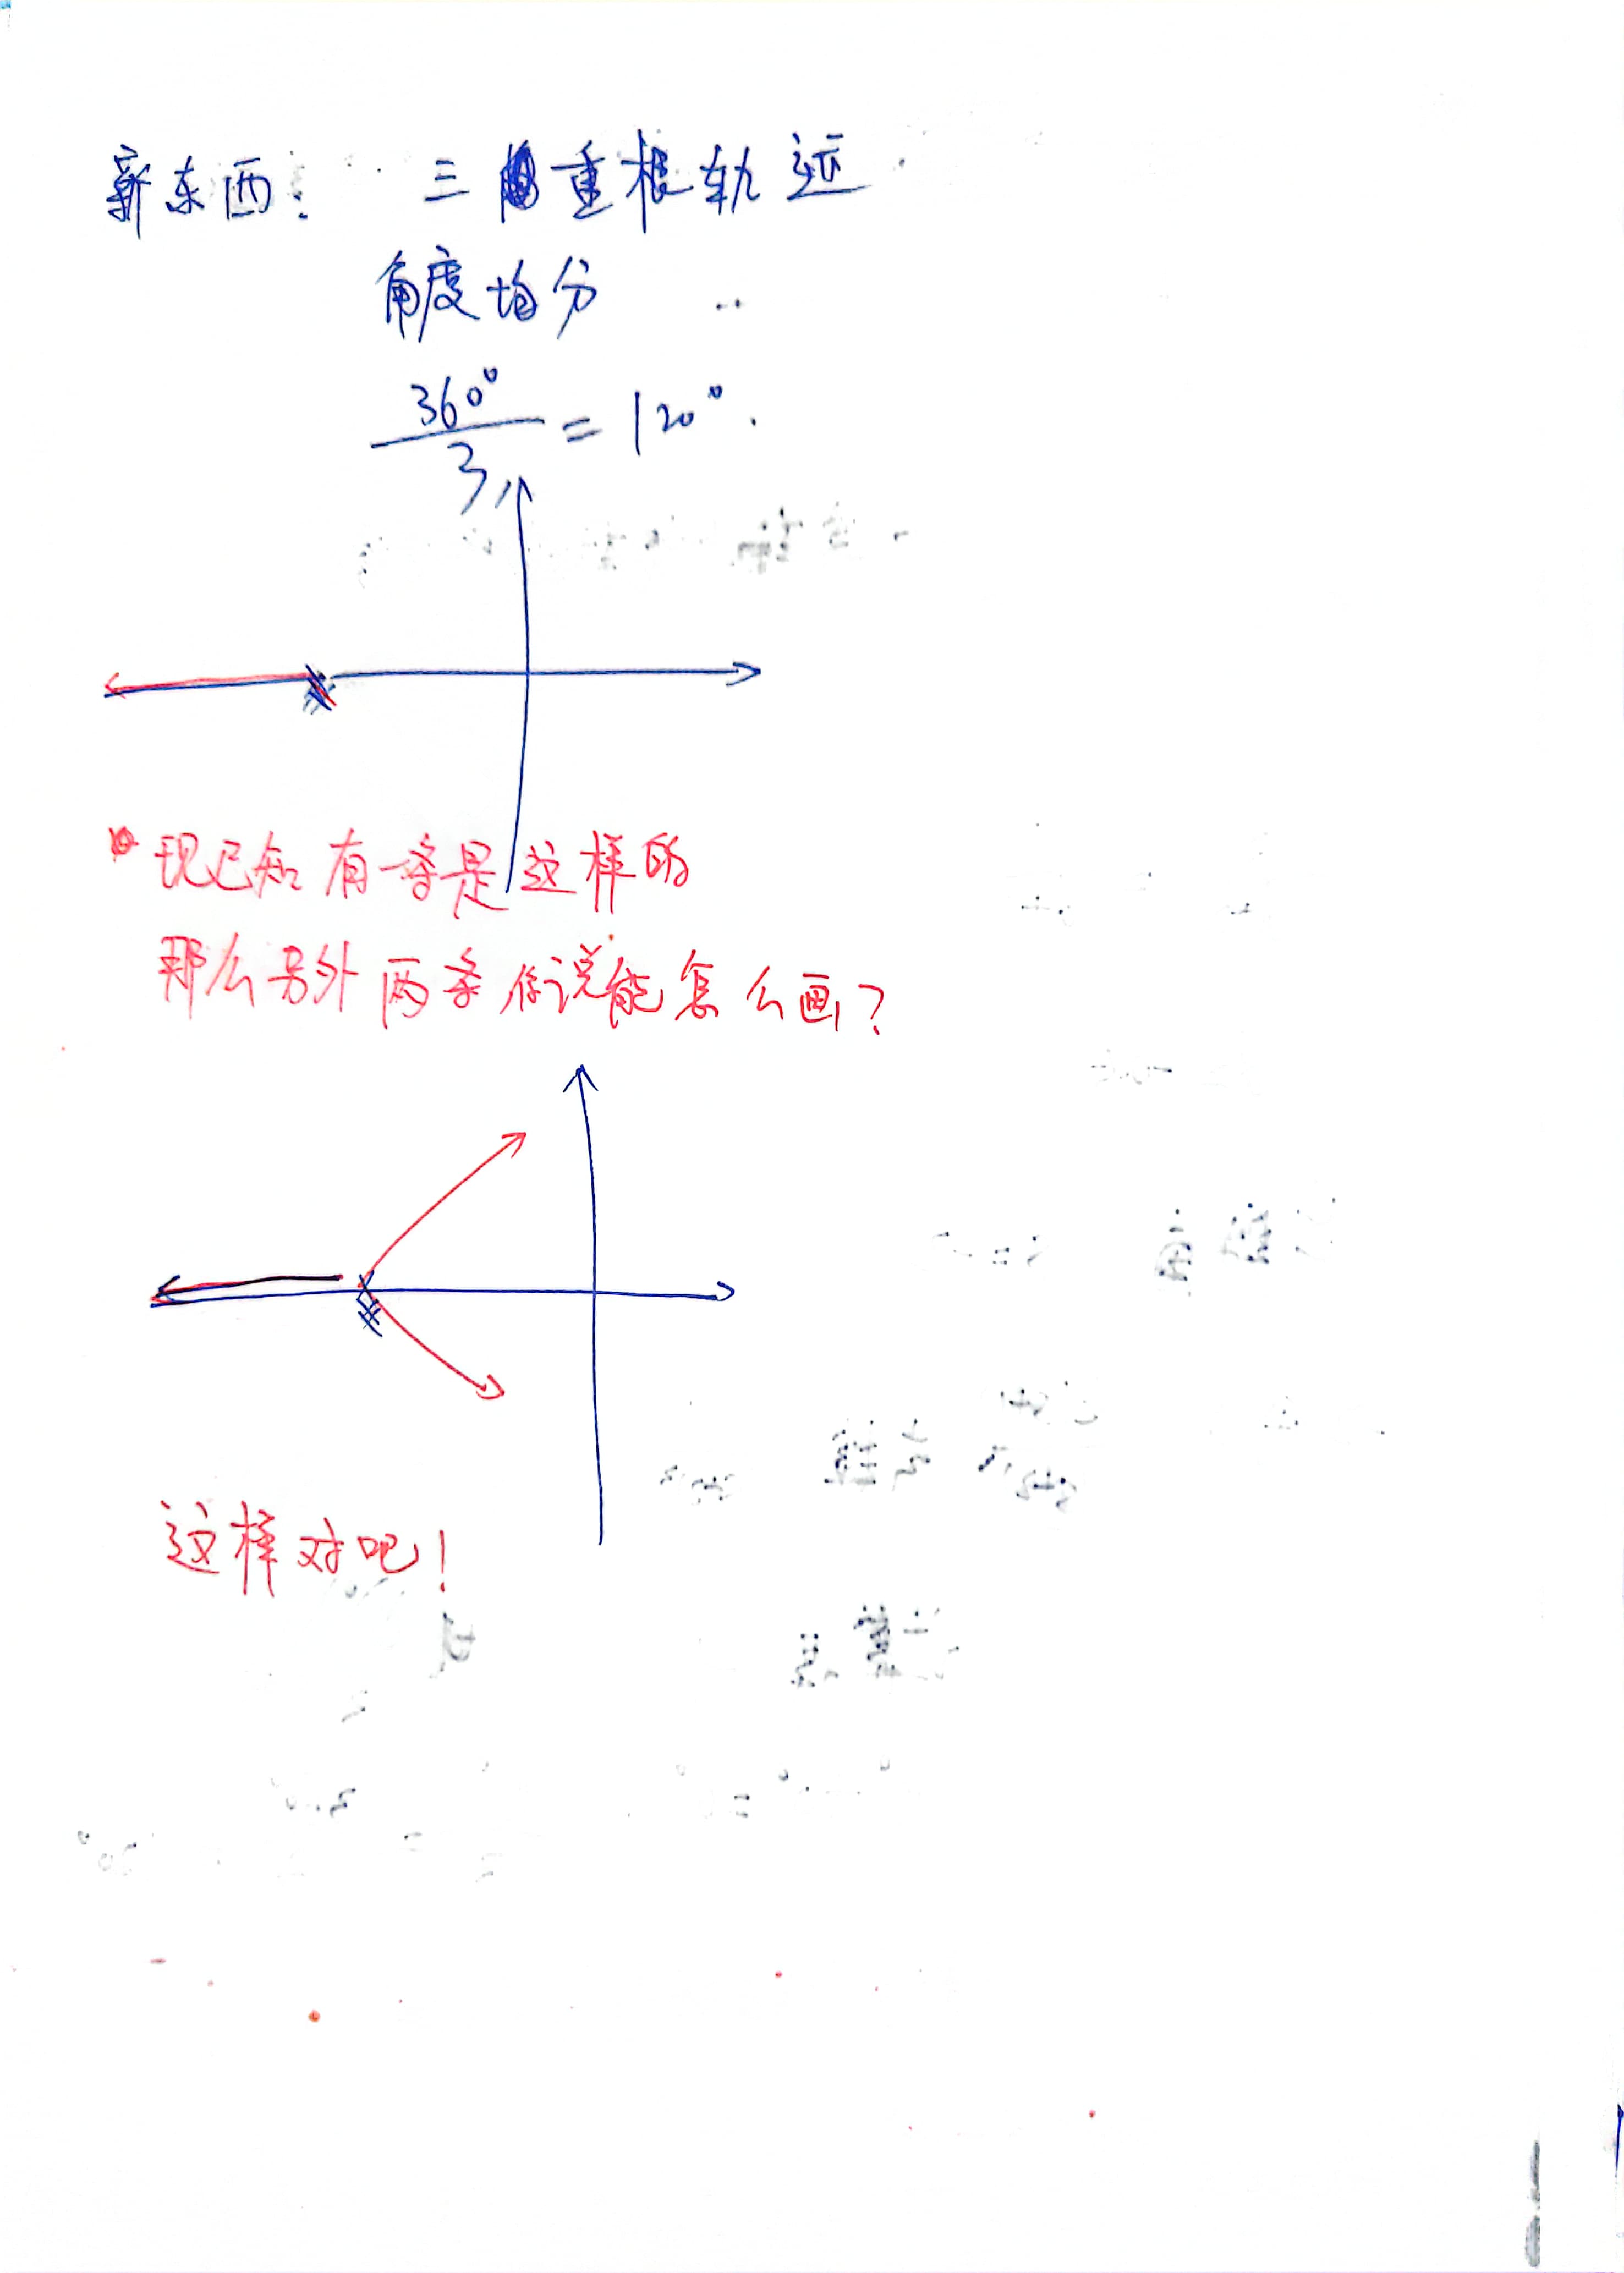 新东西: 三重根轨迹
角度均分
360°/3 = 120°.
现已知有一条是这样的
那么另外两条你说能怎么画?
这样对吧!